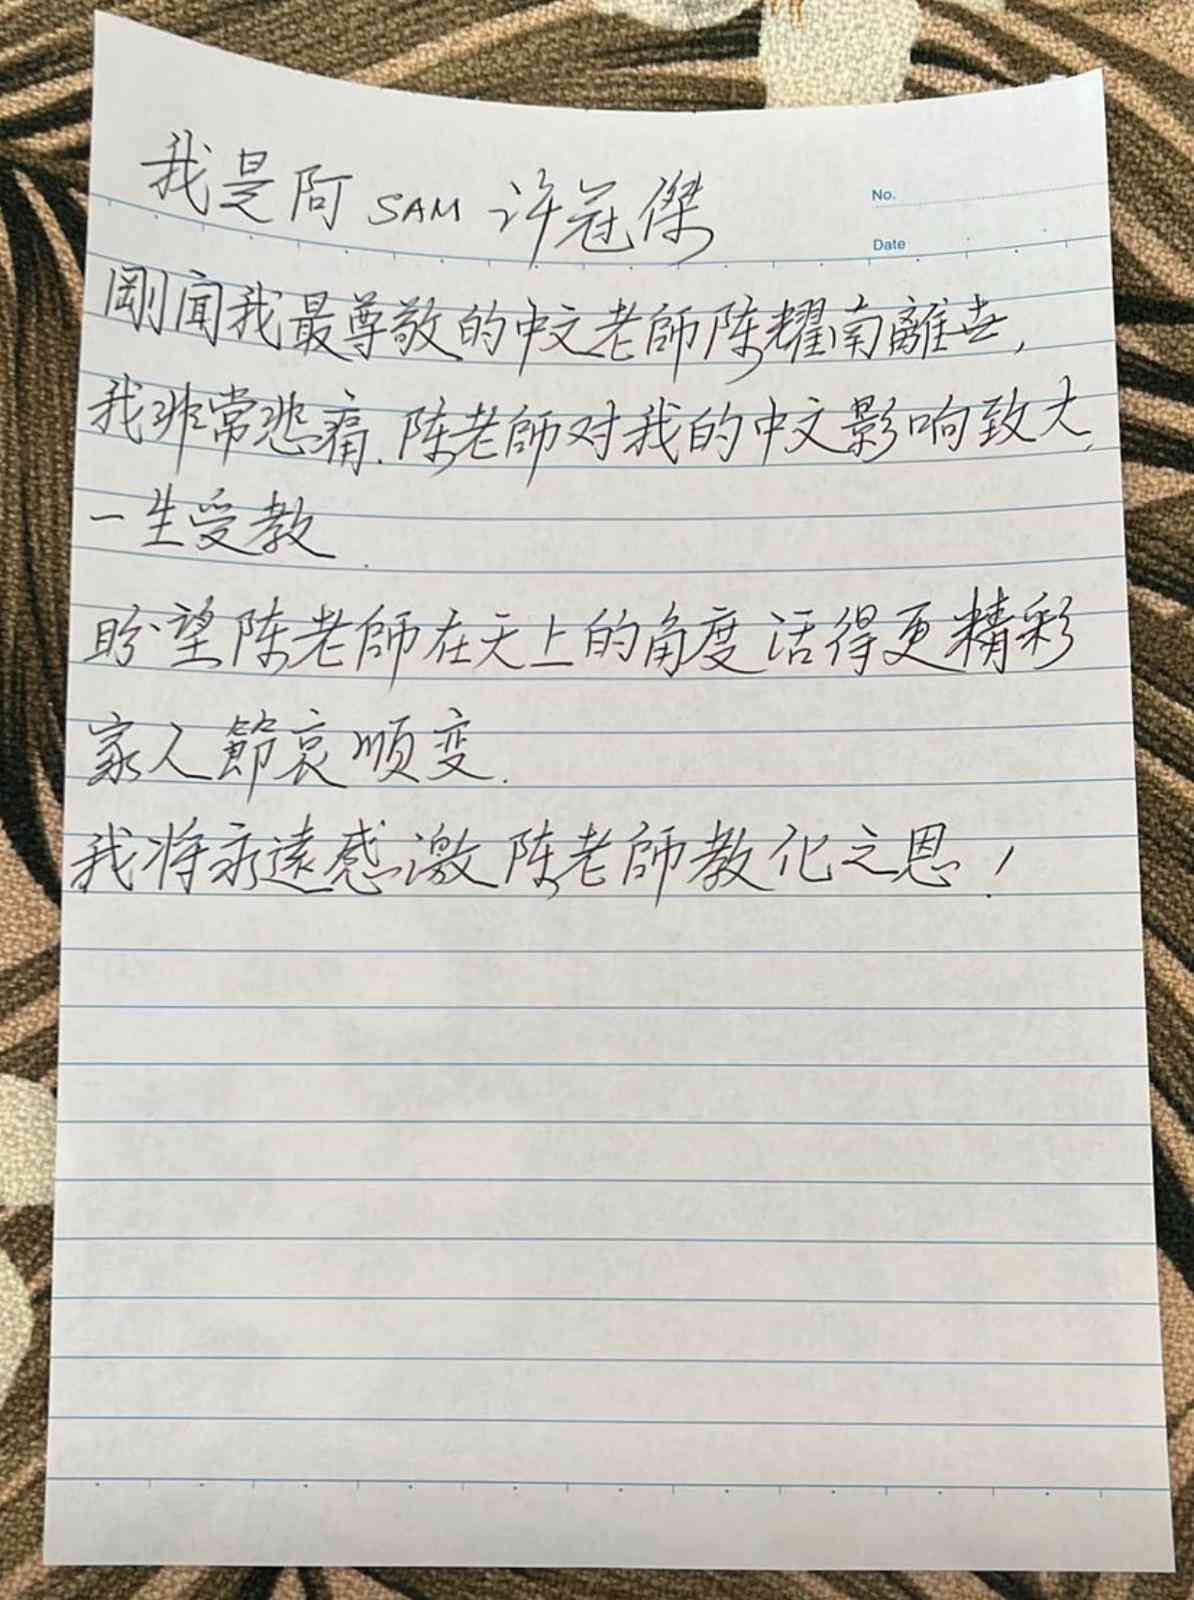 我是阿 SAM 许冠傑
No.
Date
剛闻我最尊敬的中文老師陈耀南離世,
我非常悲痛.陈老師对我的中文影响致大,
一生受教.
盼望陈老師在天上的角度活得更精彩
家人節哀順变.
我将永遠感激陈老師教化之恩!